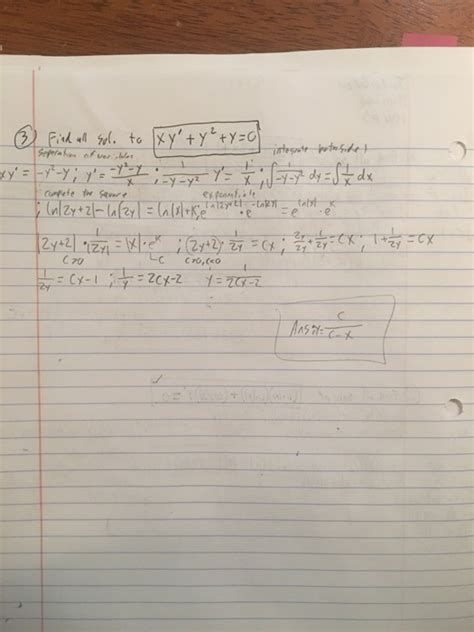 ③ Find all sol. to xy' + y² + y = 0
Seperation of variables integrate both sides!
xy' = -y²-y ; y' = (-y²-y)/x ; 1/(-y-y²) · y' = 1/x ; ∫ 1/(-y-y²) dy = ∫ 1/x dx
compute the square exponentiate
; ln|2y+2| - ln|2y| = ln|x| + K ; e^(ln|2y+2|) · e^(-ln|2y|) = e^(ln|x|) · e^K
|2y+2| · 1/|2y| = |x| · e^K ; (2y+2) · 1/2y = Cx ; 2y/2y + 1/2y = Cx ; 1 + 1/2y = Cx
C>0 C C>0, C<0
1/2y = Cx-1 ; 1/y = 2Cx-2 y = 1/(2Cx-2)
Ans: y = C/(C-x)